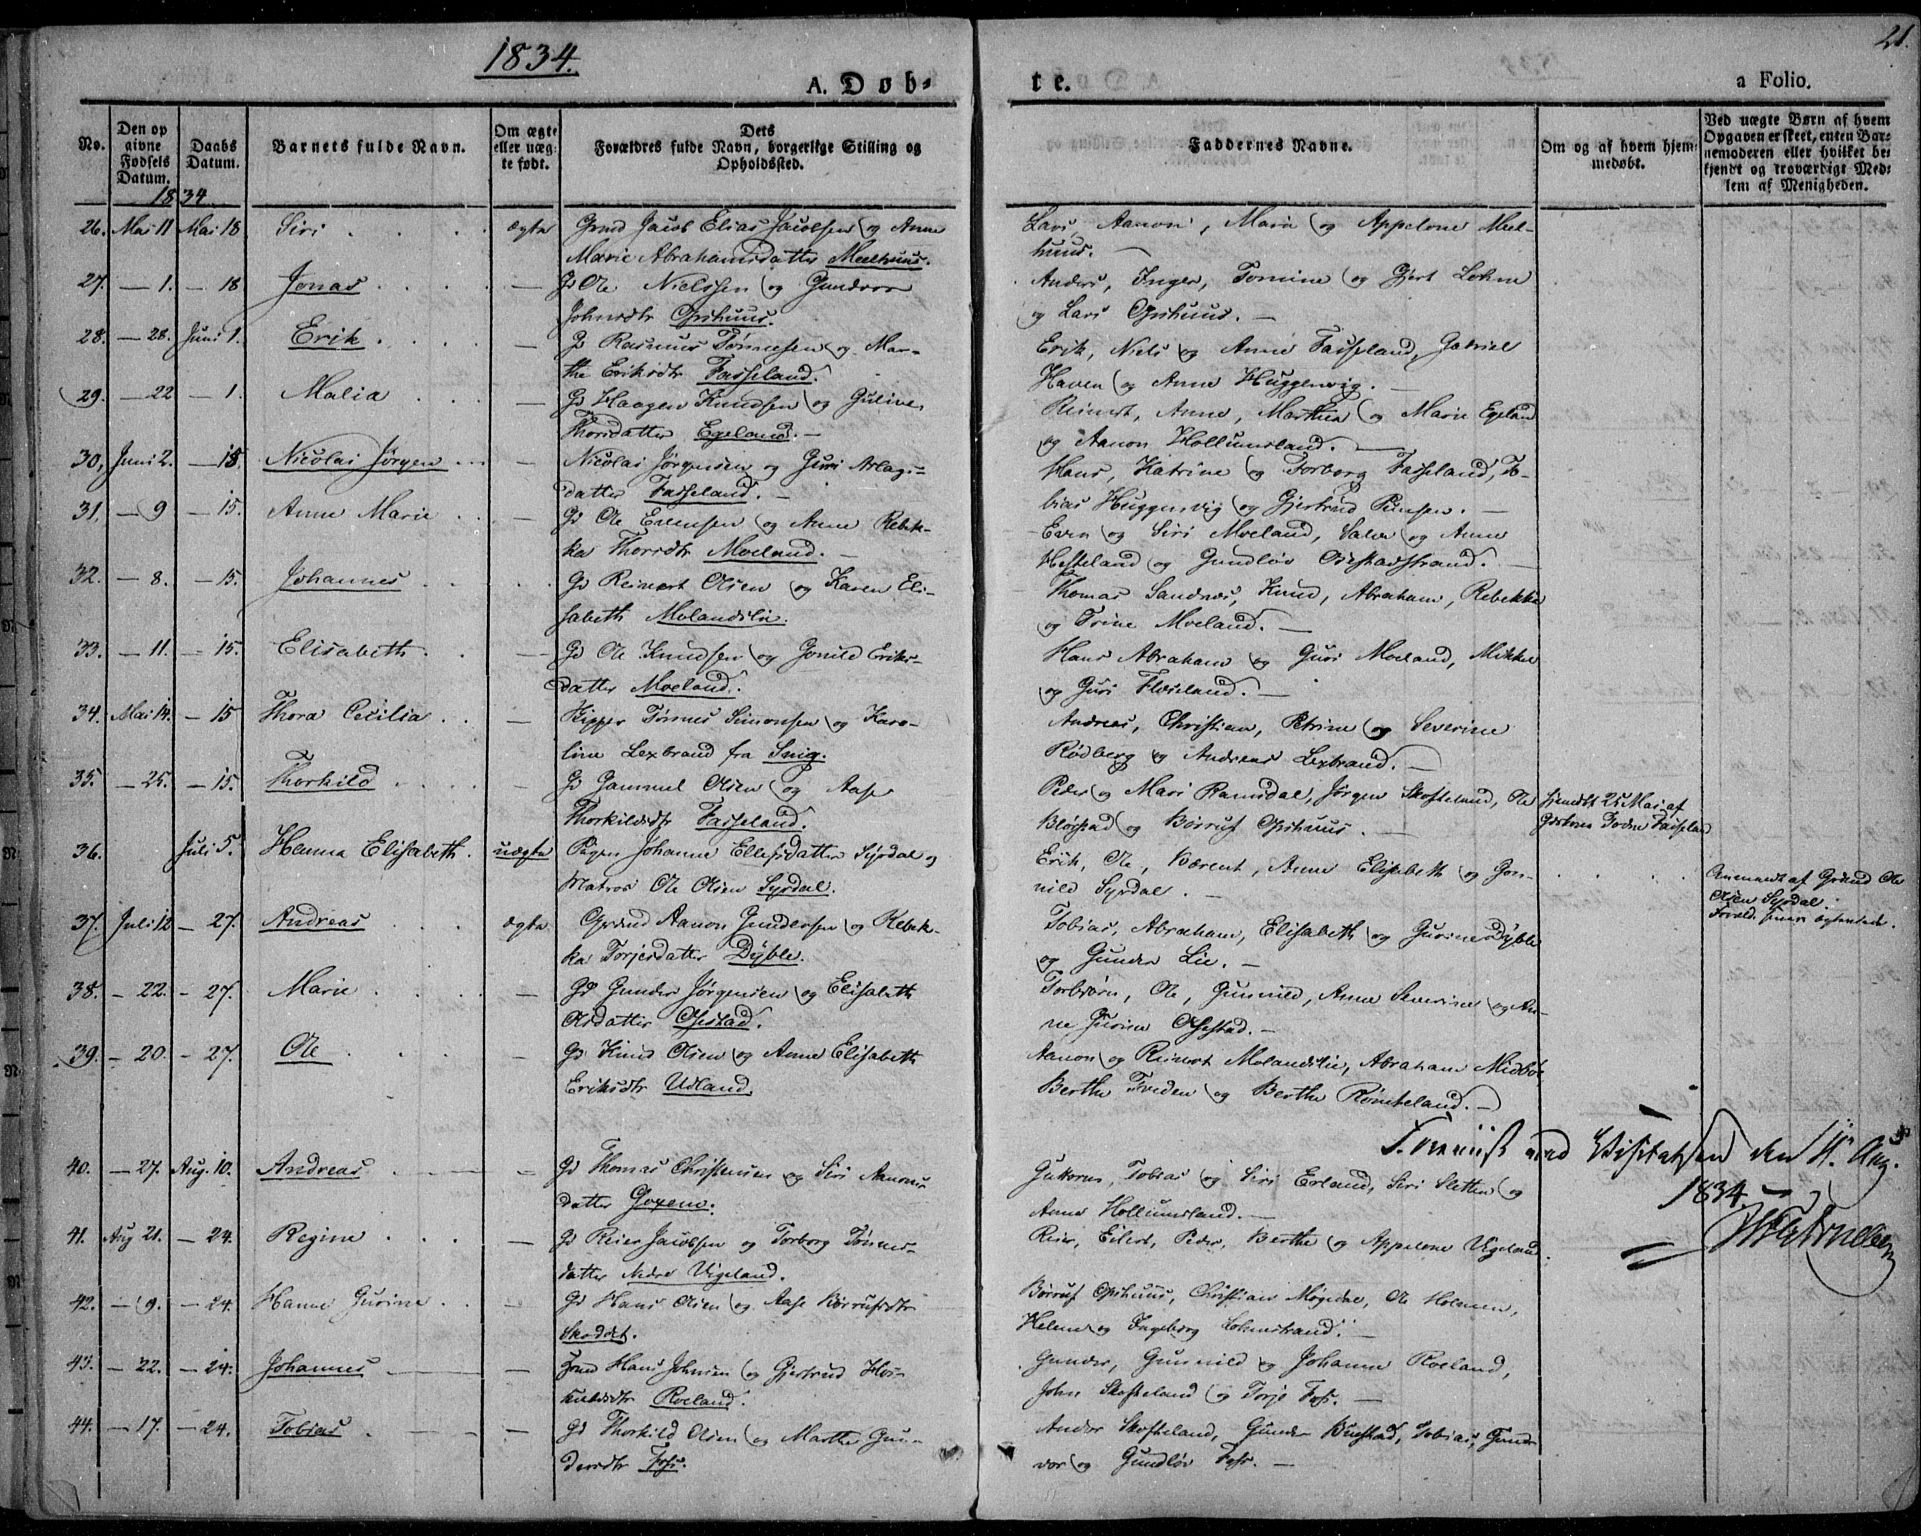 1834.
21.
A. Dob-
te.
a Folio.
No.
Den op
givne
Fødsels
Datum.
Daabs
Datum.
Barnets fulde Navn.
Om ægte
eller uæg-
te født.
Dets
Forældres fulde Navn, borgerlige Stilling og
Opholdssted.
Faddernes Navne.
Om og af hvem hjem-
medøbt.
Ved uægte Børn af hvem
Opgaven er skeet, enten Bar-
nemoderen eller hvilket be-
kjendt og troværdigt Med-
lem af Menigheden.
1834.
26. Mai 11 Mai 18 Siri ægte Grmd Jacob Elias Jacobsen og Anne
Marie Abrahamsdatter Meelhuus.
Lars, Aanon, Marie og Appelone Meel-
huus.
27. — 1. — 18 Jonas — Gd Ole Nielssen og Gundvor
Johnsdtr Opshuus.
Anders, Inger, Tomine og Gjert Lohne
og Lars Opshuus. —
28. — 28. Juni 1. Erik — Gd Rasmus Tønnesen og Mar-
the Eriksdtr Fasseland.
Erik, Niels og Anne Fasseland, Gabriel
Haven og Anne Huggenvig. —
29. — 22 — 1. Malia — Gd Haagen Knudsen og Gulive
Thorsdatter Egeland. —
Reinert, Anne, Marthea og Marie Egeland
og Aanon Hollumsland. —
30, Juni 2. — 15. Nicolai Jørgen — Nicolai Jørgensen og Guri Aslag-
datter Fasseland. —
Hans, Katrine og Torborg Fasseland, To-
bias Huggenvig og Gjertrud —
31. — 9 — 15. Anne Marie — Gd Ole Evensen og Anne Rebek-
ka Thorsdtr Moeland. —
Even og Siri Moeland, Salve og Anne
Hesteland og Gundløv —
32. — 8. — 15. Johannes Gd Reinert Olsen og Karen Eli-
sabeth Molandslie.
Thomas Sandnes, Knud, Abraham, Rebekka
og Trine Moeland. —
33. — 11. — 15. Elisabeth — Gd Ole Knudsen og Gonild Eriks-
datter Moeland.
Hans Abraham og Guri Moeland, Mikkel
og Guri —
34. Mai 14. — 15 Thora Cecilia — Skipper Tønnes Simonsen og Karo-
line Lexbrand fra Snig.
Andreas, Christian, Petrine og Severine
Rødberg og Andreas Lexbrand. —
35. — 25. — 15. Thorkild — Gd Gammel Olsen og Aase
Thorkildsdtr Fasseland.
Peder og Mari Ramsdal, Jørgen Skofteland, Ole
Bløgstad og Børruf Opshuus. —
hjemdøbt 25 Mai af
Fasseland
36. Juli 5. Hanna Elisabeth uægte Pigen Johanne Ellefsdatter Syrdal og
Matros Ole Olsen Syrdal.
Erik, Ole, Bærent, Anne Elisabeth og Gon-
nild Syrdal.
Anmeldt af Grmd Ole
Olsen Syrdal.
37. Juli 12 — 27. Andreas ægte Grmd Aanon Gundersen og Rebek-
ka Torjesdatter Dyble.
Tobias, Abraham, Elisabeth og Gurine Dyble
og Gunder Lie. —
38. — 22. — 27. Marie — Gd Gunder Jørgensen og Elisabeth
Olsdatter Ofstad.
Torbjørn, Ole, Gunnild, Anne Severine og An-
ne Gurine Ofstad. —
39. — 20. — 27. Ole — Gd Knud Olsen og Anne Elisabeth
Eriksdtr Udland.
Aanon og Reinert Molandslie, Abraham Midbøe
Berthe Tveden og Berthe Rømteland. —
Foreviist ved Visitatsen den 11. Aug.
1834
40. — 27. Aug. 10. Andreas — Gd Thomas Christensen og Siri Aanons
datter Goxem.
Gukorm, Tobias og Siri Erland, Siri Sletten og
Anne Hollumsland. —
41. Aug 21. — 24. Regine — Gd Reier Jacobsen og Torborg Tønnes-
datter Nedre Vigeland.
Reier, Eilert, Peder, Berthe og Appelone Vigeland.
42. — 9. — 24. Hanne Gurine — Gd Hans Olsen og Aase Børrufsdtr
Skoddet.
Børruf Opshuus, Christian Møgedal, Ole Holmen,
Helene og Ingeborg Lohnestrand. —
43. — 22. — 24. Johannes — Hans Johnsen og Gjertrud Hos-
kuldsdtr Roeland.
Gunder, Gunnild og Johanne Roeland,
John Skofteland og Torje Foss. —
44. — 17. — 24. Tobias — Gd Thorkild Olsen og Marthe Gun-
dersdtr Foss.
Anders Skofteland, Gunder Buestad, Tobias, Gund-
vor og Gundløv Foss. —